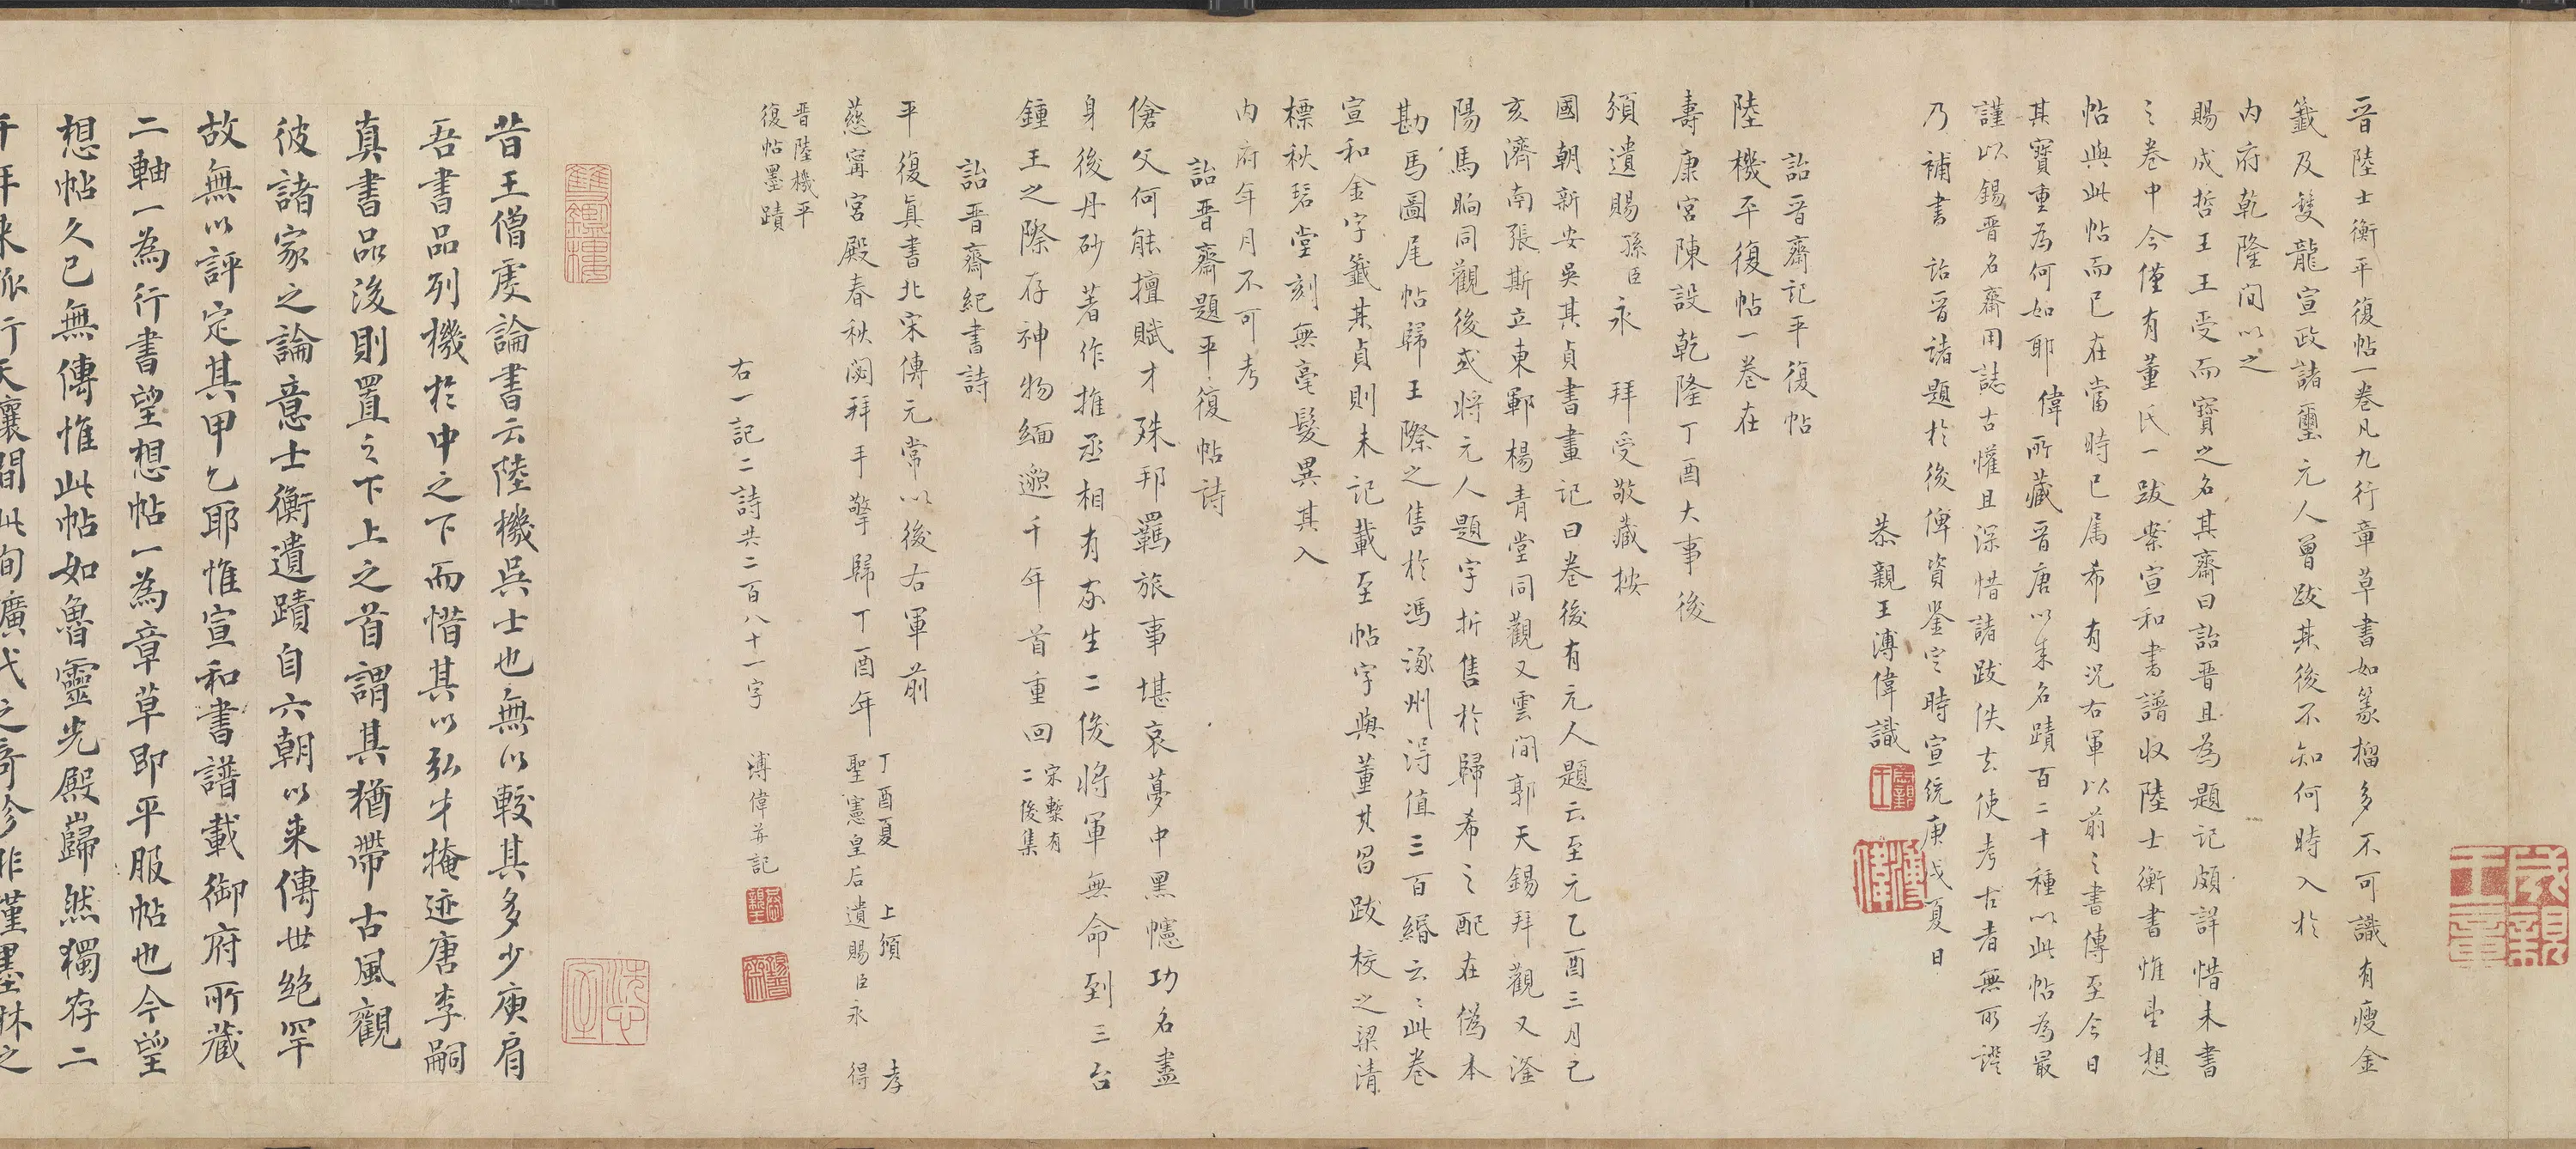 晉陸士衡平復帖一卷凡九行章草書如篆榴多不可識有瘦金
籤及雙龍宣政諸璽元人曾跋其後不知何時入於
內府乾隆間以之
賜成哲王王受而寶之名其齋曰詒晉且為題記頗詳惜未書
之卷中今僅有董氏一跋案宣和書譜收陸士衡書惟望想
帖與此帖而已在當時已屬希有況右軍以前之書傳至今日
其寶重為何如耶偉所藏晉唐以來名蹟百二十種以此帖為最
謹以錫晉名齋用誌古懽且深惜諸跋佚去使考古者無所證
乃補書詒晉諸題於後俾資鉴定時宣統庚戌夏日
恭親王溥偉識
詒晉齋記平復帖
陸機平復帖一卷在
壽康宮陳設乾隆丁酉大事後
頒遺賜孫臣永 拜受敬藏按
國朝新安吳其貞書畫記曰卷後有元人題云至元乙酉三月己
亥濟南張斯立東鄆楊青堂同觀又雲間郭天錫拜觀又滏
陽馬晌同觀後或將元人題字折售於歸希之配在偽本
勘馬圖尾帖歸王際之售於馮涿州得值三百緡云云此卷
宣和金字籤其貞則未記載至帖字與董其昌跋校之梁清
標秋碧堂刻無毫髮異其入
內府年月不可考
詒晉齋題平復帖詩
傖父何能擅賦才殊邦羈旅事堪哀夢中黑幰功名盡
身後丹砂著作推丞相有家生二俊將軍無命到三台
鍾王之際存神物緬邈千年首重回
宋槧有
二俊集
詒晉齋紀書詩
平復真書北宋傳元常以後右軍前
慈寧宮殿春秋閟拜手擎歸丁酉年
丁酉夏 上頒 孝
聖憲皇后遺賜臣永 得
晉陸機平
復帖墨蹟
右一記二詩共二百八十一字 溥偉并記
昔王僧虔論書云陸機吳士也無以較其多少庾肩
吾書品列機於中之下而惜其以弘才掩迹唐李嗣
真書品後則置之下上之首謂其猶帶古風觀
彼諸家之論意士衡遺蹟自六朝以來傳世絕罕
故無以評定其甲乙耶惟宣和書譜載御府所藏
二軸一為行書望想帖一為章草即平服帖也今望
想帖久已無傳惟此帖如魯靈光殿巋然獨存二
千年來孤行天壤間此洵曠代之奇珍非僅墨林之